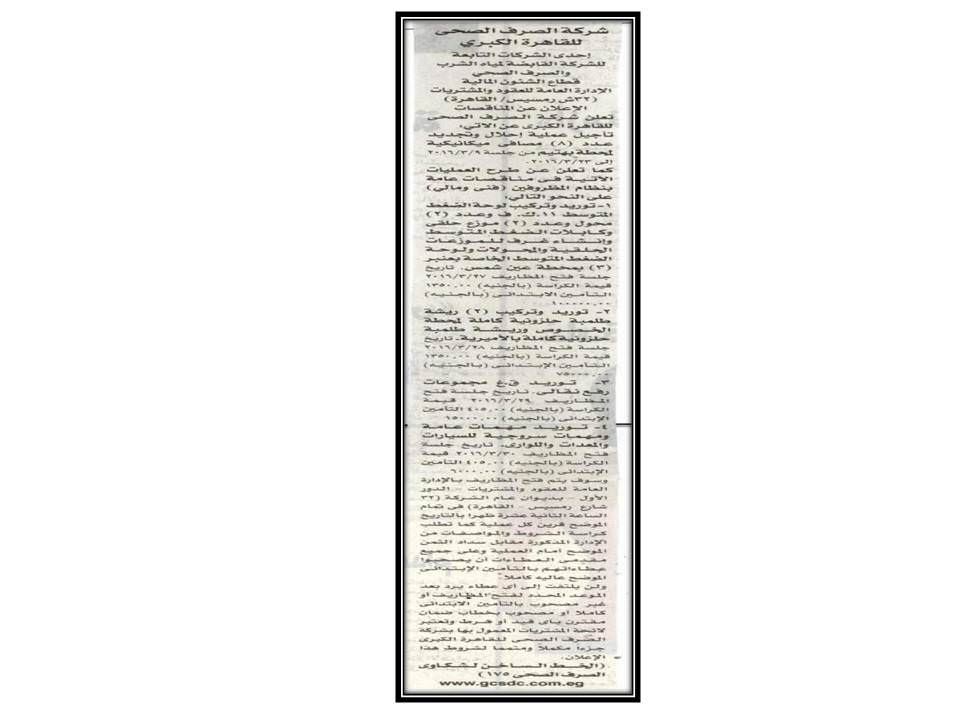 شركة الصرف الصحى
للقاهرة الكبري
إحدى الشركات التابعة
للشركة القابضة لمياه الشرب
والصرف الصحي
قطاع الشئون المالية
الإدارة العامة للعقود والمشتريات
(٣٢ش رمسيس/ القاهرة)
الإعلان عن المناقصات
تعلن شركة الصرف الصحى
للقاهرة الكبرى عن الآتي:
تأجيل عملية إحلال وتجديد
عدد (٨) مصافى ميكانيكية
لمحطة بهتيم من جلسة ٢٠١٦/٣/٩
إلى ٢٠١٦/٣/٢٣.
كما تعلن عن طرح العمليات
الآتية فى مناقصات عامة
بنظام المظروفين (فنى ومالى)
على النحو التالي:
١- توريد وتركيب لوحة الضغط
المتوسط ١١ك. ف وعدد (٢)
محول وعدد (٢) موزع حلقى
وكابلات الضغط المتوسط
وإنشاء غرف للموزعات
الحلقية والمحولات ولوحة
الضغط المتوسط الخاصة بعنبر
(٣) بمحطة عين شمس. تاريخ
جلسة فتح المظاريف ٢٠١٦/٣/٢٧
قيمة الكراسة (بالجنيه) ١٣٥٠,٠٠
التأمين الابتدائى (بالجنيه)
١٠٠٠٠٠,٠٠
٢- توريد وتركيب (٢) ريشة
طلمبة حلزونية كاملة لمحطة
الخصوص وريشة طلمبة
حلزونية كاملة بالأميرية. تاريخ
جلسة فتح المظاريف ٢٠١٦/٣/٢٨
قيمة الكراسة (بالجنيه) ١٣٥٠,٠٠
التأمين الإبتدائى (بالجنيه)
٧٥٠٠٠,٠٠
٣- توريد ق.غ مجموعات
رفع نقالى. تاريخ جلسة فتح
المظاريف ٢٠١٦/٣/٢٩ قيمة
الكراسة (بالجنيه) ٤٠٥,٠٠ التأمين
الإبتدائى (بالجنيه) ١٥٠٠٠,٠٠
توريد مهمات عامة
ومهمات سروجية للسيارات
والمعدات واللوارى. تاريخ جلسة
فتح المظاريف ٢٠١٦/٣/٣٠ قيمة
الكراسة (بالجنيه) ٤٠٥,٠٠ التأمين
الإبتدائى (بالجنيه) ٦٠٠٠,٠٠
وسوف يتم فتح المظاريف بالإدارة
العامة للعقود والمشتريات - الدور
الأول - بديوان عام الشركة (٣٢
شارع رمسيس - القاهرة) فى تمام
الساعة الثانية عشرة ظهرا بالتاريخ
الموضح قرين كل عملية كما تطلب
كراسة الشروط والمواصفات من
الإدارة المذكورة مقابل سداد الثمن
الموضح أمام العملية وعلى جميع
مقدمى العطاءات أن يصحبوا
عطاءاتهم بالتأمين الإبتدائى
الموضح عاليه كاملا.
ولن يلتفت إلى أى عطاء يرد بعد
الموعد المحدد لفتح المظاريف أو
غير مصحوب بالتأمين الابتدائى
كاملا أو مصحوب بخطاب ضمان
مقترن بأى قيد أو شرط وتعتبر
لائحة المشتريات المعمول بها بشركة
الصرف الصحى للقاهرة الكبرى
جزءا مكملا ومتمما لشروط هذا
الإعلان.
(الخط الساخن لشكاوى
الصرف الصحى ١٧٥)
www.gcsdc.com.eg